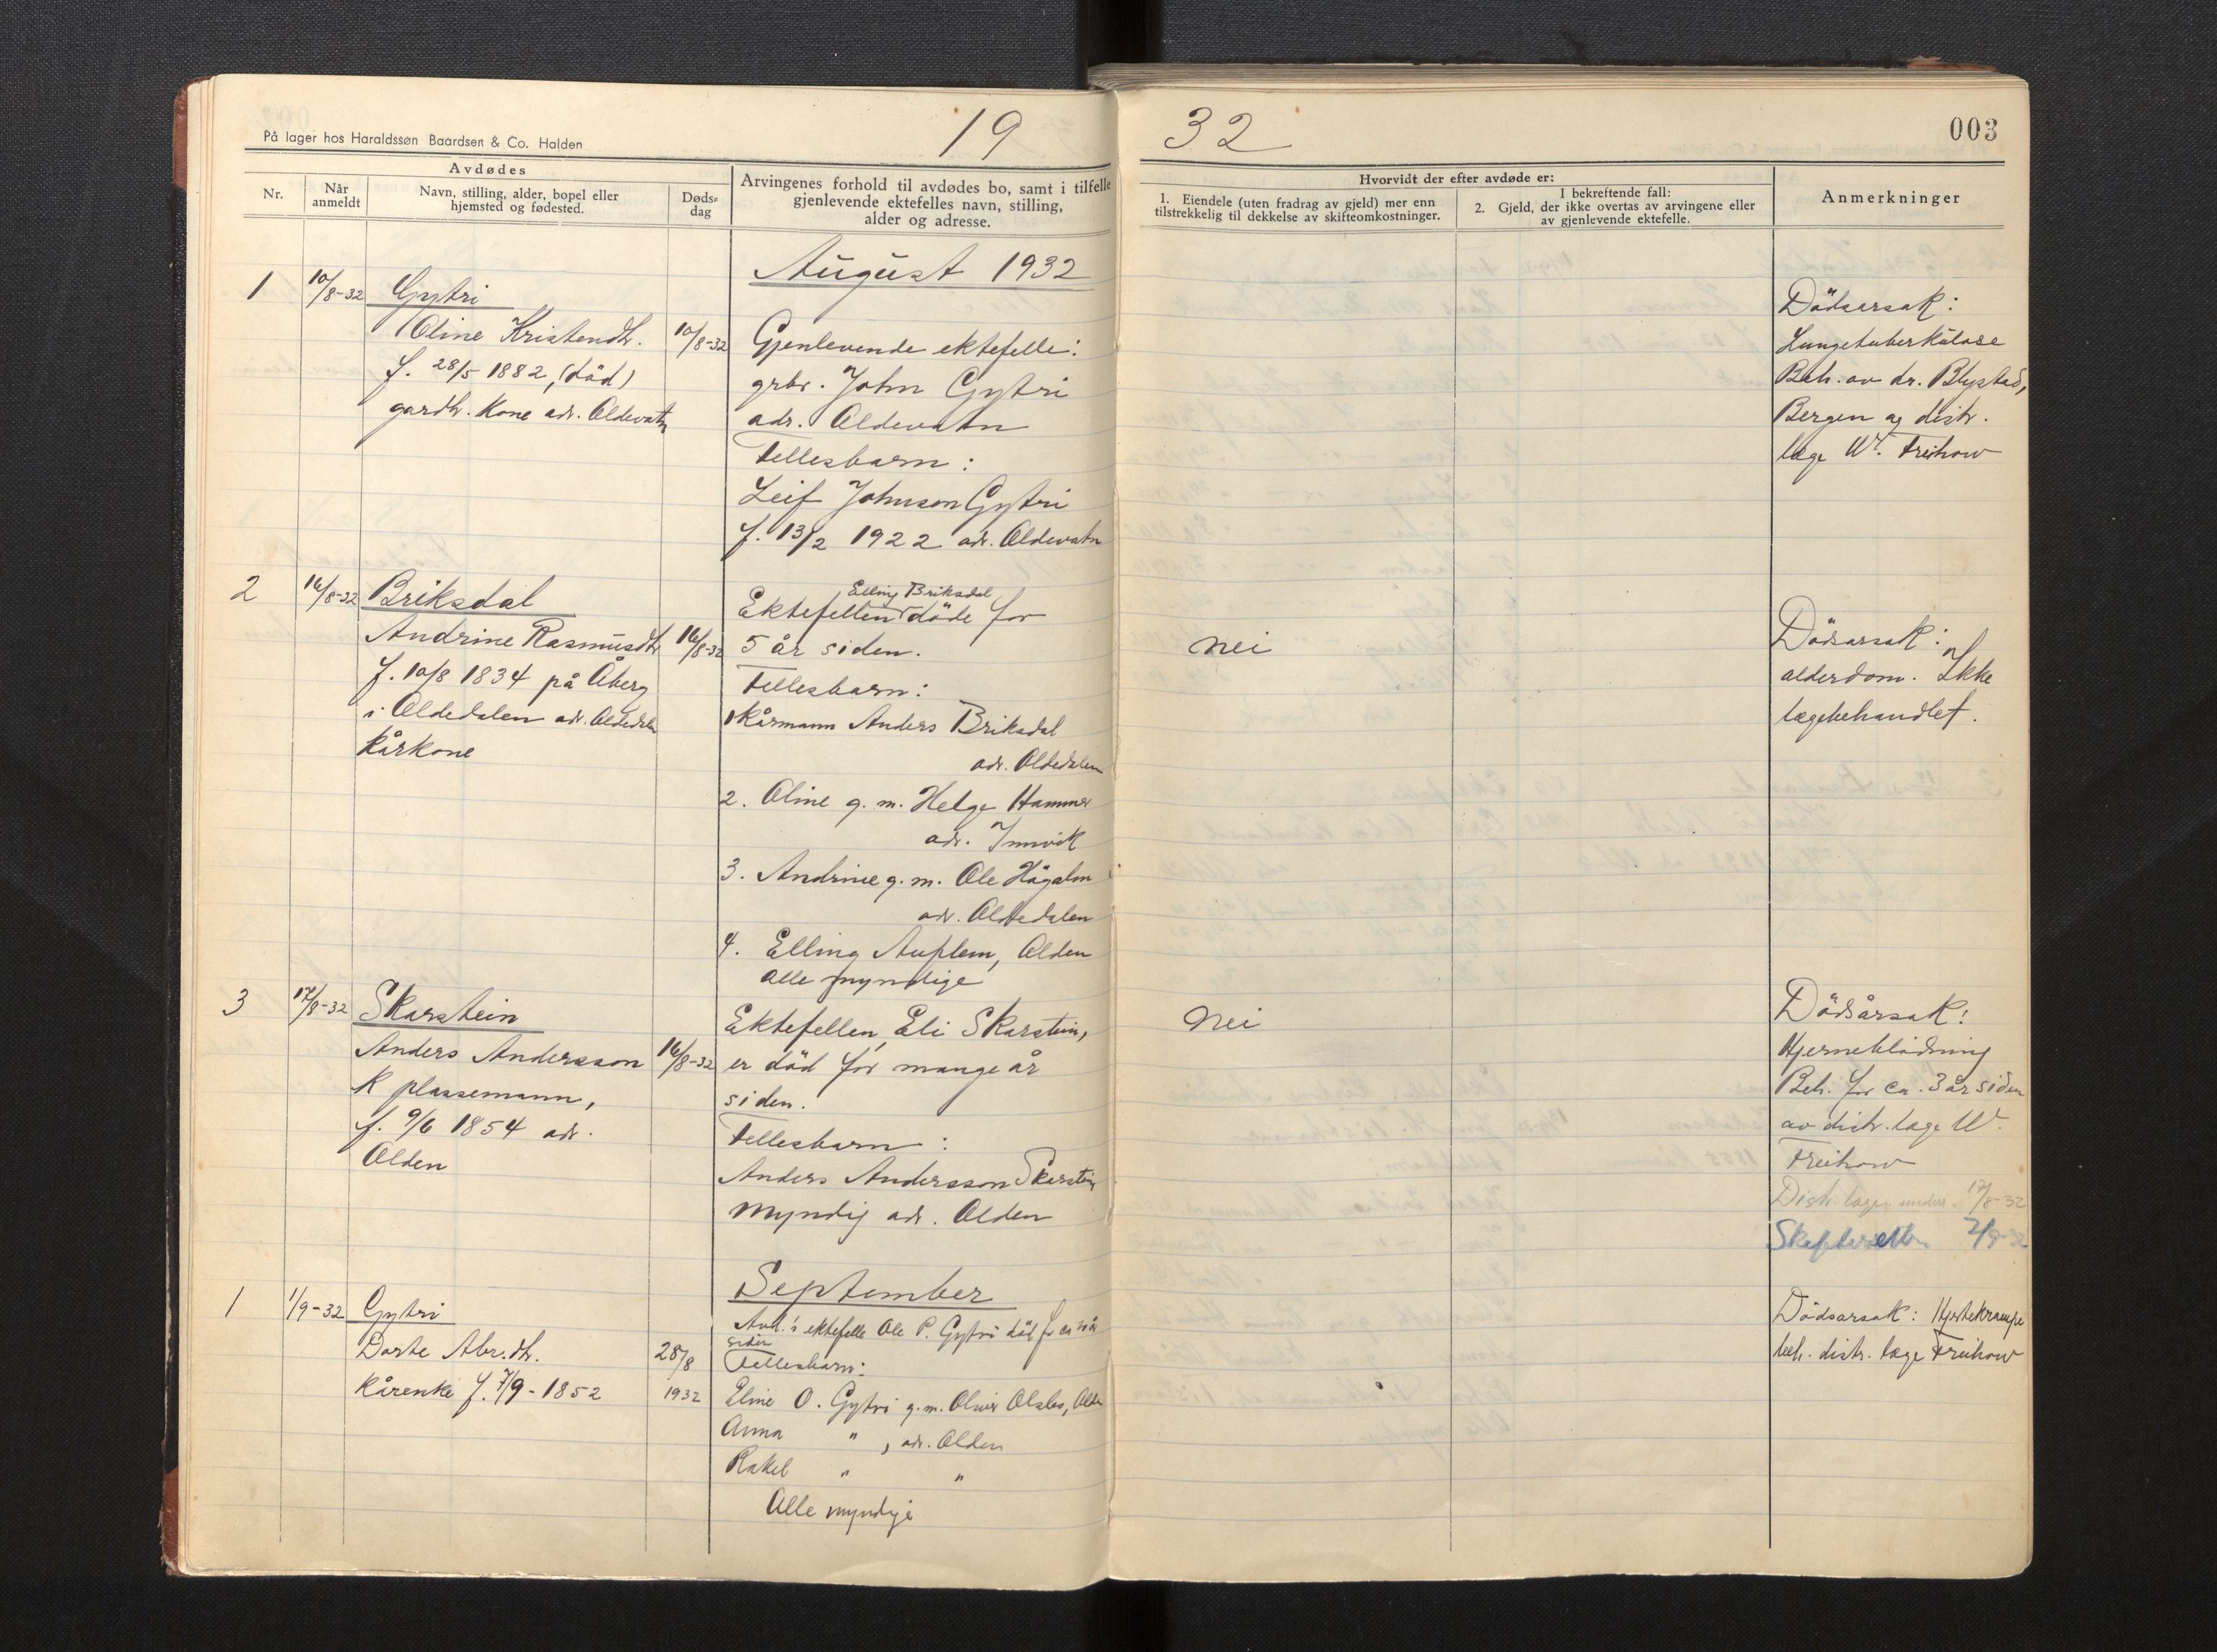 19
32
003
På lager hos Haraldssøn Baardsen & Co. Halden
Avdødes
Nr.
Når anmeldt
Navn, stilling, alder, bopel eller
hjemsted og fødested.
Døds-
dag
Arvingenes forhold til avdødes bo, samt i tilfelle
gjenlevende ektefelles navn, stilling,
alder og adresse.
Hvorvidt der efter avdøde er:
1. Eiendele (uten fradrag av gjeld) mer enn
tilstrekkelig til dekkelse av skifteomkostninger.
I bekreftende fall:
2. Gjeld, der ikke overtas av arvingene eller
av gjenlevende ektefelle.
Anmerkninger
August 1932
1 10/8-32 Gytri
Oline Kristendtr. 10/8-32
f. 28/5 1882, (död)
gardbr. Kone adr. Oldevatn
Gjenlevende ektefelle:
grbr. John Gytri
adr. Oldevatn
Fellesbarn:
Leif Johnson Gytri
f. 13/2 1922 adr. Oldevatn
Dödsarsak:
Lungetuberkulose
Beh. av dr. Blystad,
Bergen og distr.
læge W. Freihow
2 16/8-32 Briksdal
Andrine Rasmusdtr 16/8-32
f. 10/8 1834 på Åberg
i Oldedalen adr. Oldedalen
Kårkone
Elling Briksdal
Ektefellen döde for
5 år siden.
Fellesbarn:
1 Kårmann Anders Briksdal
adr. Oldedalen
2. Oline g. m. Helge Hammer
adr. Innvik
3. Andrine g. m. Ole Högalm
adr. Oldedalen
4. Elling Auflem, Olden
Alle myndige
nei
Dödsarsak:
alderdom. Ikke
lægebehandlet.
3 17/8-32 Skarstein
Anders Andersson 16/8-32
K plassemann,
f. 9/6 1854 adr.
Olden
Ektefellen, Eli Skarstein,
er död for mange år
siden.
Fellesbarn:
Anders Andersson Skarstein
Myndig adr. Olden
nei
Dödsårsak:
Hjerneblödning
Beh. for ca. 3 år siden
av distr. læge W.
Freihow
Distr. lægen unders. 17/8-32
Skifteretten 2/9-32
September
1 1/9-32 Gytri
Dorte Abr.dtr. 28/8
Kårenke f. 7/9-1852 1932
Avd.'s ektefelle Ole P. Gytri död for ca år
siden
Fellesbarn:
Eline O. Gytri g.m. Oliver Olsbø, Olden
Anna " , adr. Olden
Rakel " "
Alle myndige
Dödsarsak: Hjertekrampe
beh. distr. læge Freihow